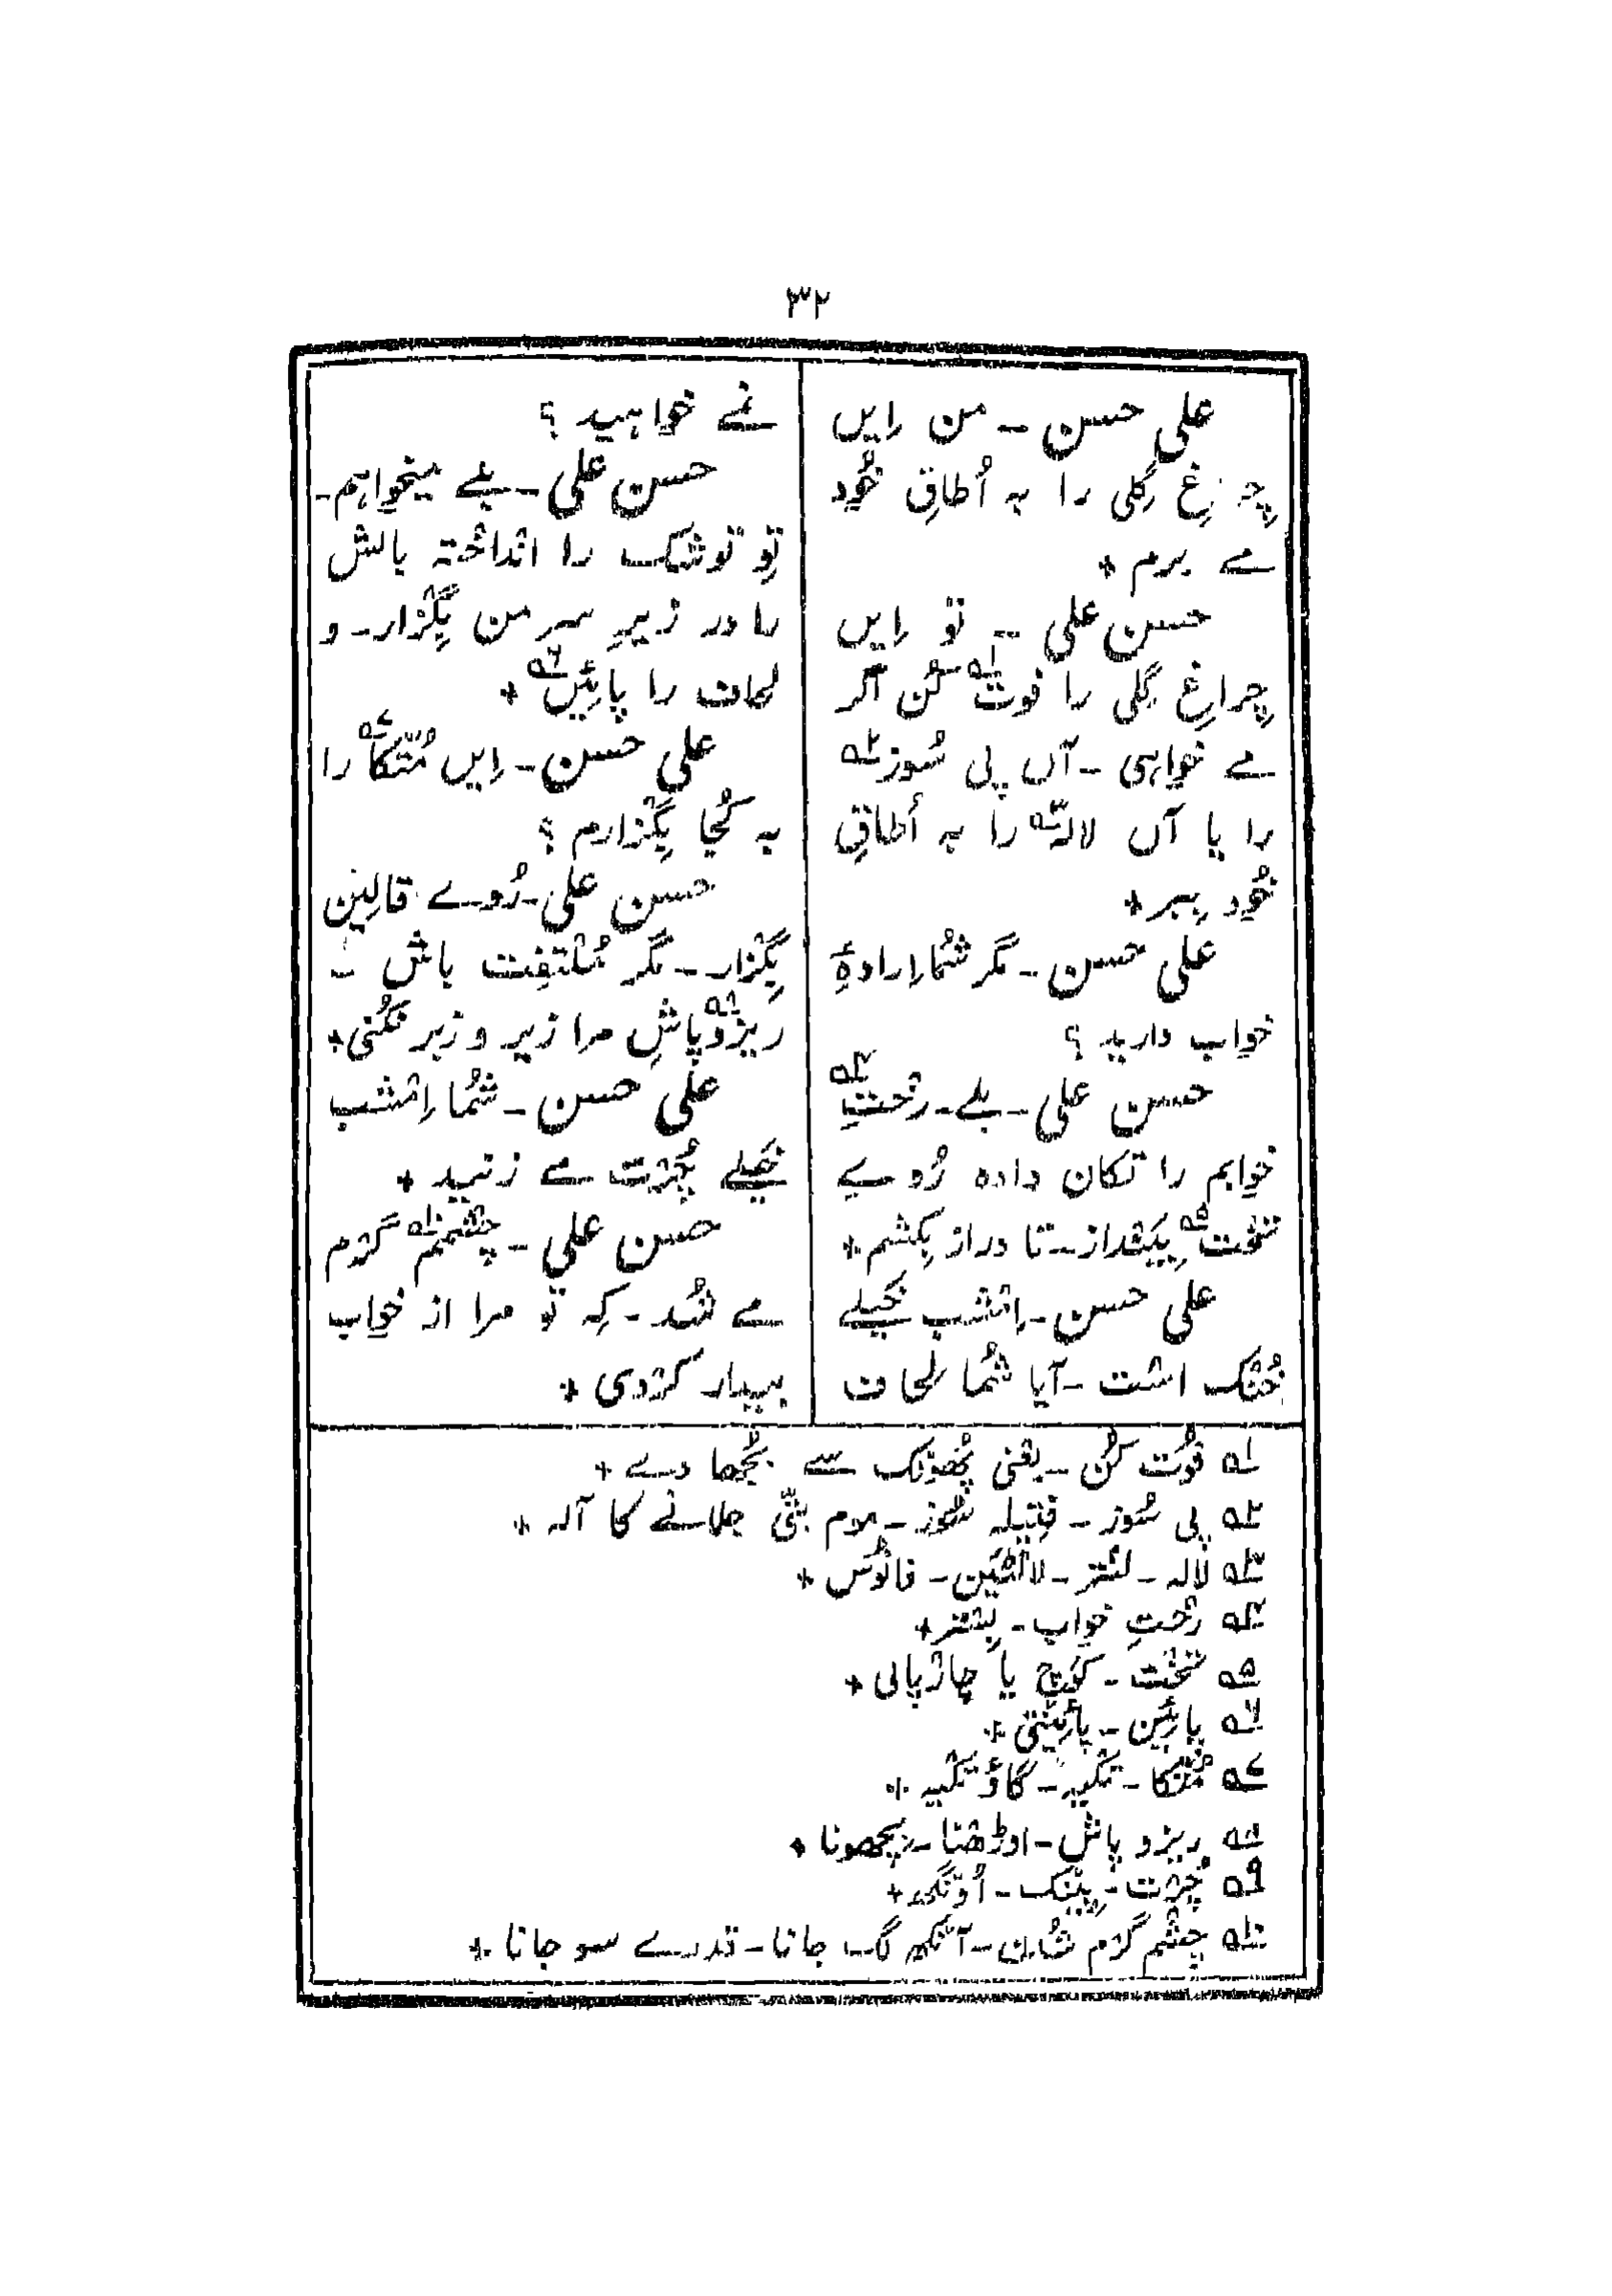 ۳۲
علی حسن - من اِیں
چراغِ گِلی را بہ اُطاقِ خُود
مے برم +
حسن علی - تو اِیں
چِراغِ گِلی را فوت۱ کُن اگر
مے خواہی - آں پی سُوز۲
را یا آں لالہ۳ را بہ اُطاقِ
خُود بِبر +
علی حسن - مگر شُما اِرادۂِ
خواب دارید ؟
حسن علی - بلے - رخْتِ۴
خوابم را تکان دادہ رُوے
تخْت۵ بِینْداز - تا دراز بِکشم +
علی حسن - اِمْشب خَیلے
خُنُک اسْت - آیا شُما لِحاف
نمے خواہید ؟
حسن علی - بلے میخواہم -
تو توشک را انداخْتہ بالش
را در زیرِ سرِ من بِگْزار - و
لحاف را پائیں۶ +
علی حسن - اِیں مُتّکا۷ را
بہ کُجا بِگْزارم ؟
حسن علی - رُوے قالِین
بِگْزار - مگر مُلْتفِت باش -
ریزو۸ پاشِ مرا زیر و زبر نکُنی +
علی حسن - شُما اِمْشب
خَیلے چُرْت مے زنید +
حسن علی - چشْمم۱۰ گرْم
مے شُد - کِہ تو مرا از خواب
بیدار کرْدی +
۱ فُوت کُن - یعْنی پُھونْک سے بُجھا دے +
۲ پی سُوز - فِتیلہ سُوز - موم بتّی جلانے کا آلہ +
۳ لالہ - لنْتر - لالْٹَین - فانُوس +
۴ رخْتِ خواب - بِسْتر +
۵ تخْت - کَوچ یا چارْپائی +
۶ پائِین - پائینْتی +
۷ مُتّکا - تکْیہ - گاؤ تکْیہ +
۸ ریز و پاش - اوڑھنا - بِچھونا +
۹ چُرْت - پِینک - اُونْگھ +
۱۰ چشْم گرْم شُدن - آنْکھ لگ جانا - قدرے سو جانا +